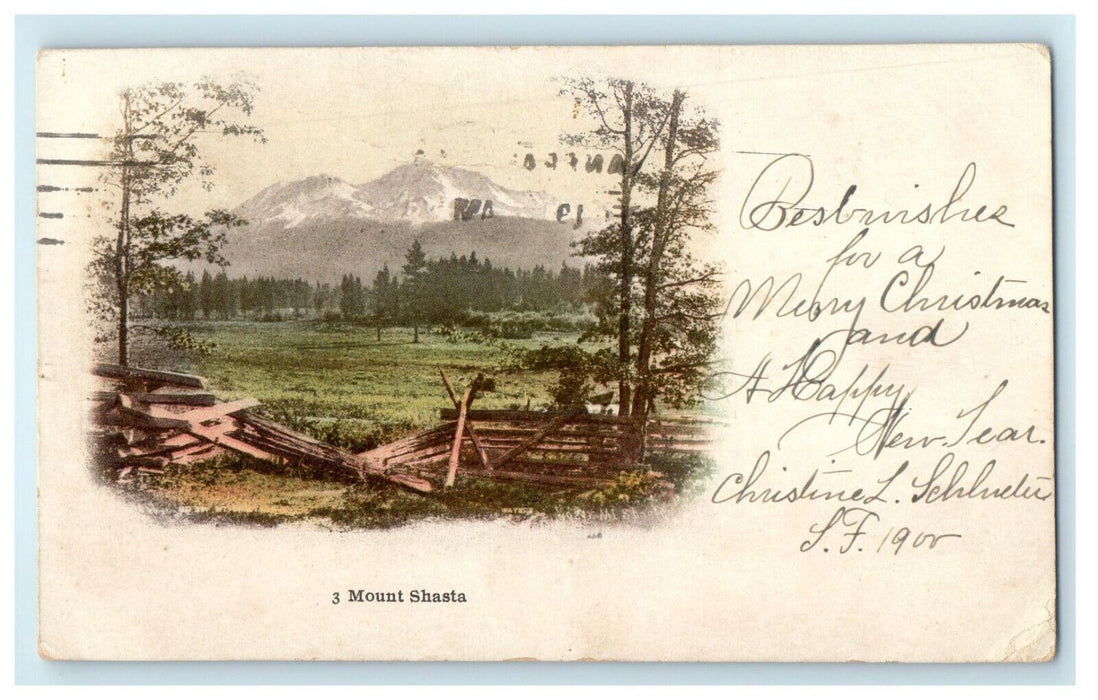 Best wishes
for a
Merry Christmas
and
A Happy
New Year.
Christine L. Schlueter
S.F. 1900
3 Mount Shasta